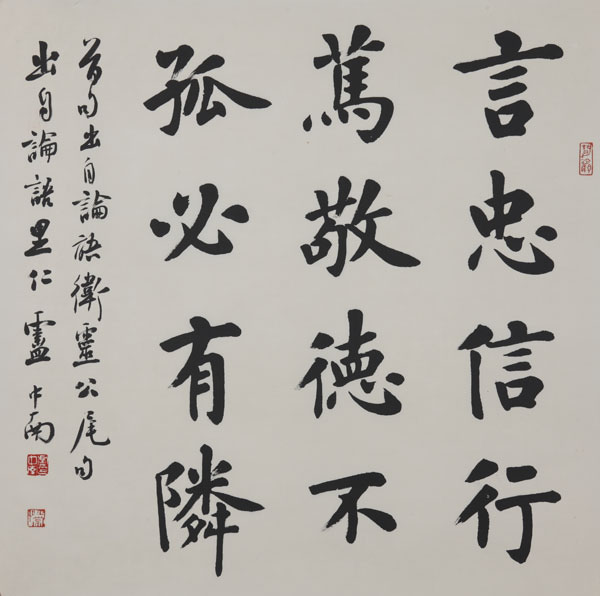 言忠信行
篤敬徳不
孤必有隣
首句出自論語衛靈公尾句
出自論語里仁盧中南